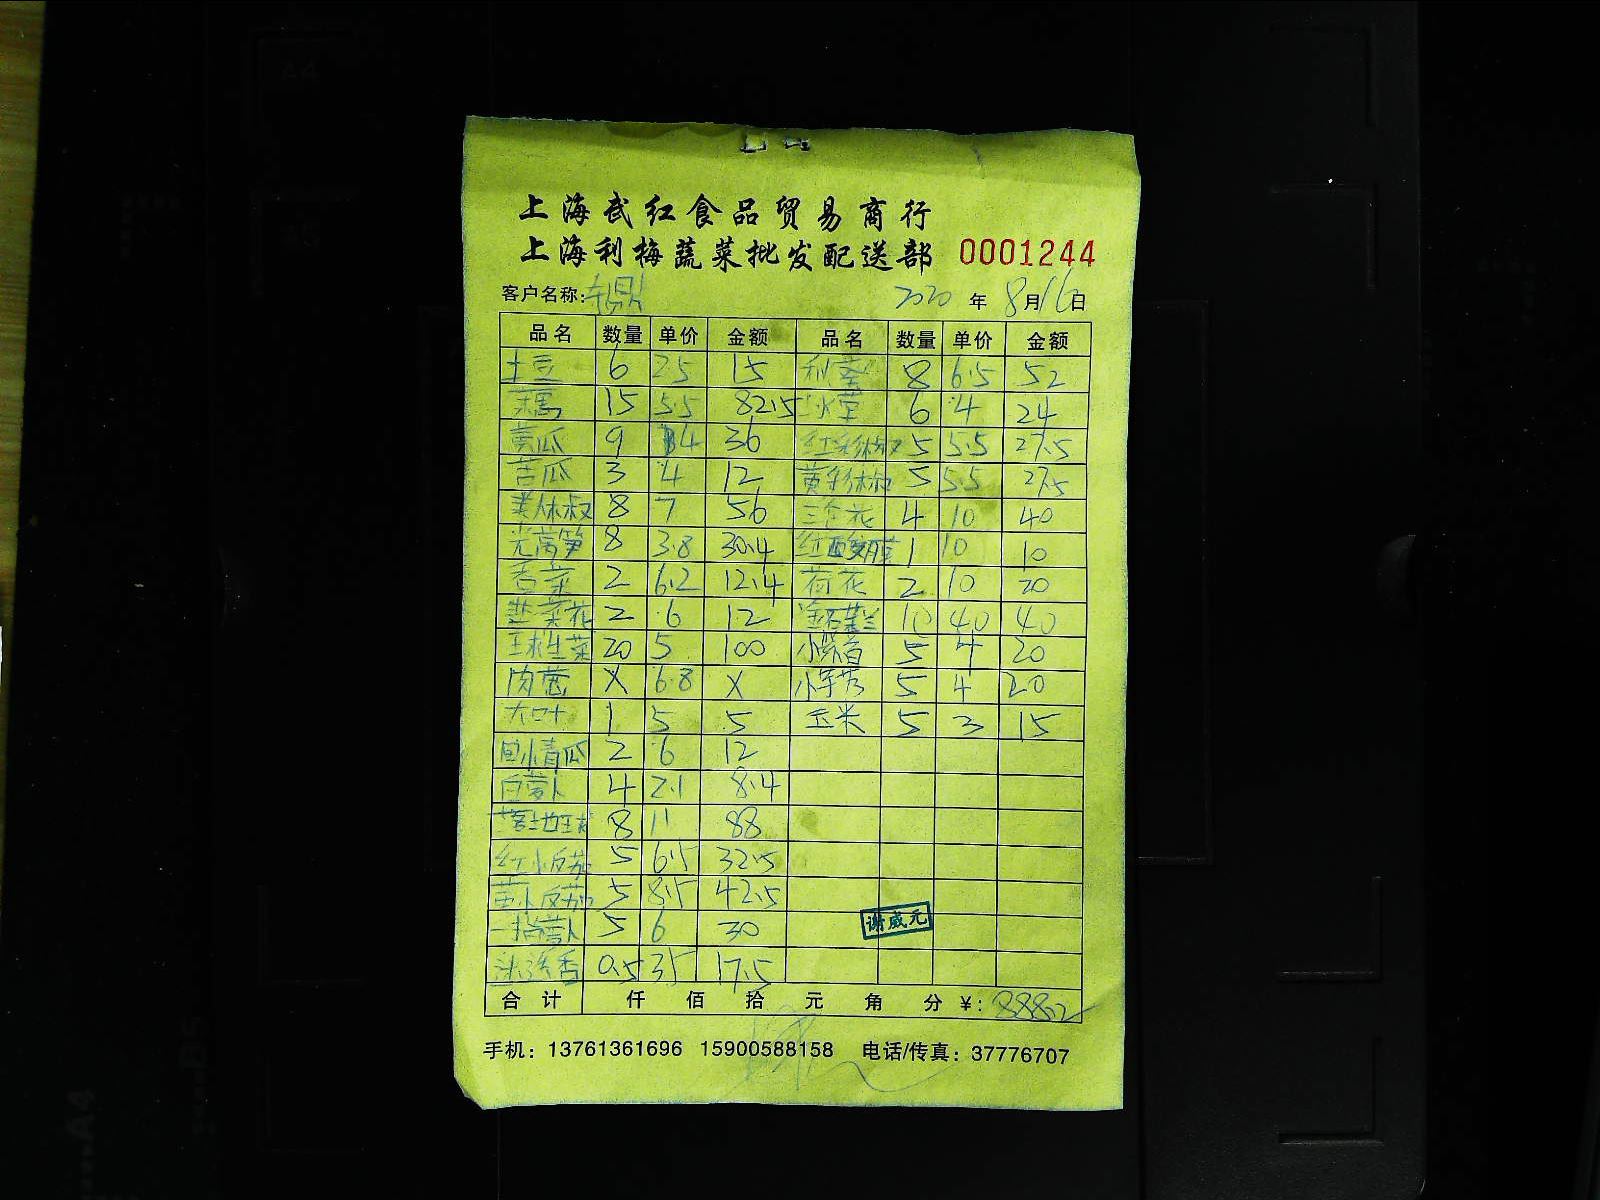 上海武红食品贸易商行
上海利梅蔬菜批发配送部 0001244
客户名称: 2020年8月16日
品名 数量 单价 金额 品名 数量 单价 金额
土豆 6 2.5 15 秋葵 8 6.5 52
15 5.5 82.5 冰草 6 4 24
黄瓜 9 4 36 红彩椒 5 5.5 27.5
苦瓜 3 4 12 黄彩椒 5 5.5 27.5
美人椒 8 7 56 三色花 4 10 40
光莴笋 8 3.8 30.4 红酸膜 1 10 10
香菜 2 6.2 12.4 荷花 2 10 20
韭菜花 2 6 12 40 40
球生菜 20 5 100 小紫薯 5 4 20
肉葱 X 6.8 X 小芋艿 5 4 20
大叶 1 5 5 玉米 5 3 15
小青瓜 2 6 12
白萝卜 4 2.1 8.4
8 11 88
红小番茄 5 6.5 32.5
黄小番茄 5 8.5 42.5
手指萝卜 5 6 30
迷迭香 0.5 35 17.5
谢威元
合计 仟 佰 拾 元 角 分 ¥: 888.2
手机: 13761361696 15900588158 电话/传真: 37776707